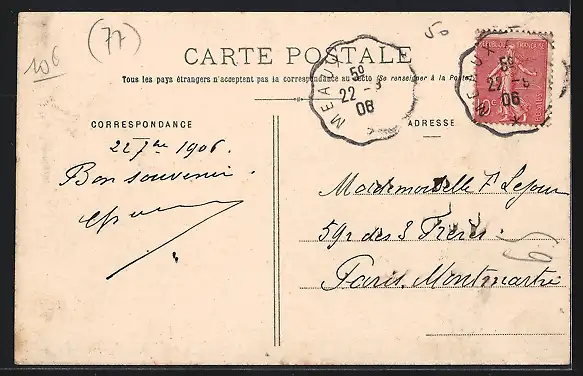 106
(77)
50
CARTE POSTALE
Tous les pays étrangers n'acceptent pas la correspondance au recto (Se renseigner à la Poste)
MEAUX
5º
22 - 
06
RÉPUBLIQUE FRANÇAISE
10c
POSTES
5º
22 -
06
CORRESPONDANCE
ADRESSE
22 1906.
Bon souvenir.
Mademoiselle F Lejour
59 r des 3 Frères
Paris. Montmartre